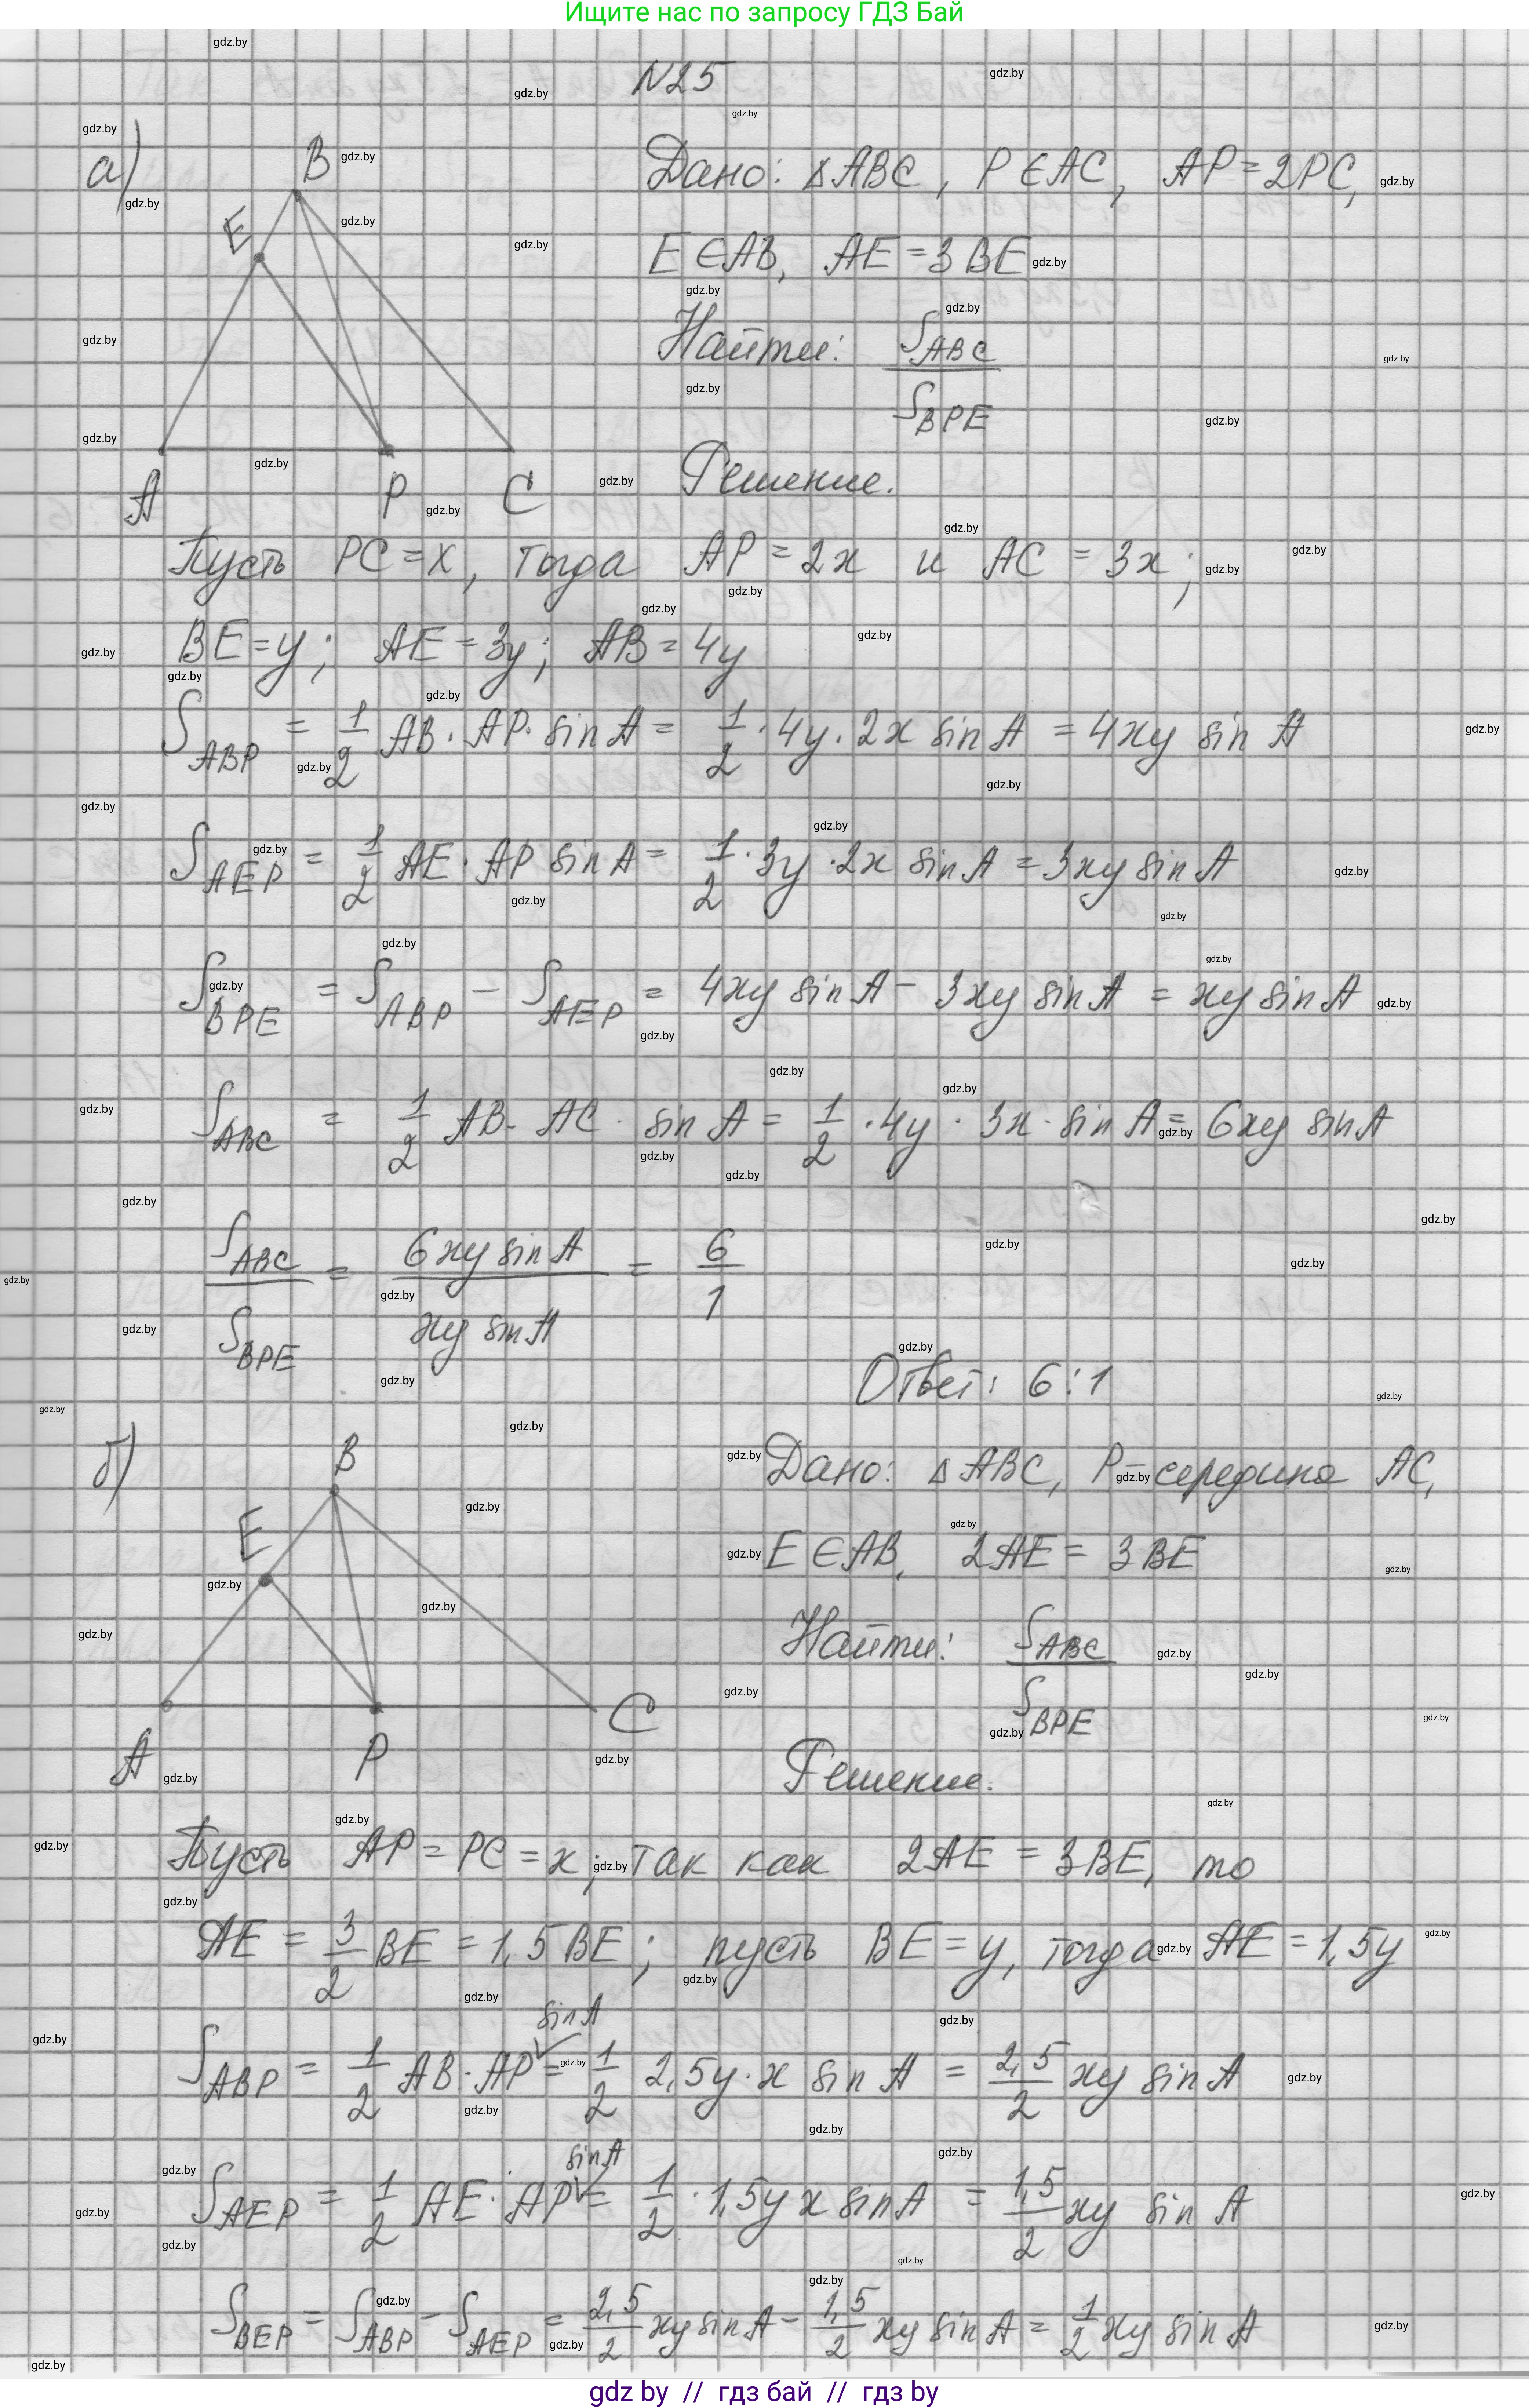 Ищите нас по запросу ГДЗ Бай
N25
а)
Дано: ΔABC, P∈AC, AP=2PC,
E∈AB, AE=3BE
Найти: S_ABC / S_BPE
B
E
A
P
C
Решение.
Пусть PC=x, тогда AP=2x и AC=3x;
BE=y; AE=3y; AB=4y
S_ABP = 1/2 AB·AP·sin A = 1/2·4y·2x sin A = 4xy sin A
S_AEP = 1/2 AE·AP sin A = 1/2·3y·2x sin A = 3xy sin A
S_BPE = S_ABP - S_AEP = 4xy sin A - 3xy sin A = xy sin A
S_ABC = 1/2 AB·AC·sin A = 1/2·4y·3x·sin A = 6xy sin A
S_ABC / S_BPE = 6xy sin A / xy sin A = 6/1
Ответ: 6:1
б)
Дано: ΔABC, P-середина AC,
E∈AB, 2AE=3BE
Найти: S_ABC / S_BPE
B
E
A
P
C
Решение.
Пусть AP=PC=x; так как 2AE=3BE, то
AE = 3/2 BE = 1,5 BE; пусть BE=y, тогда AE=1,5y
S_ABP = 1/2 AB·AP sin A = 1/2 2,5y·x sin A = 2,5/2 xy sin A
S_AEP = 1/2 AE·AP sin A = 1/2·1,5y x sin A = 1,5/2 xy sin A
S_BEP = S_ABP - S_AEP = 2,5/2 xy sin A - 1,5/2 xy sin A = 1/2 xy sin A
gdz by // гдз бай // гдз by
gdz.by